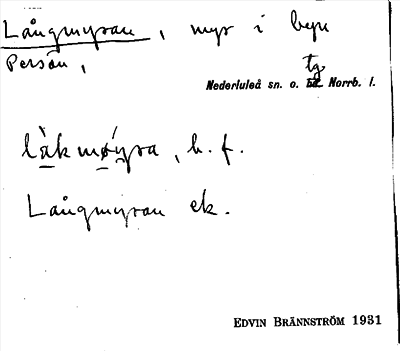 Långmyran, myr i byn
Persön,
tg
Nederluleå sn. o. Norrb. l.
làkmø̀yra, b. f.
Långmyran ek.
EDVIN BRÄNNSTRÖM 1931